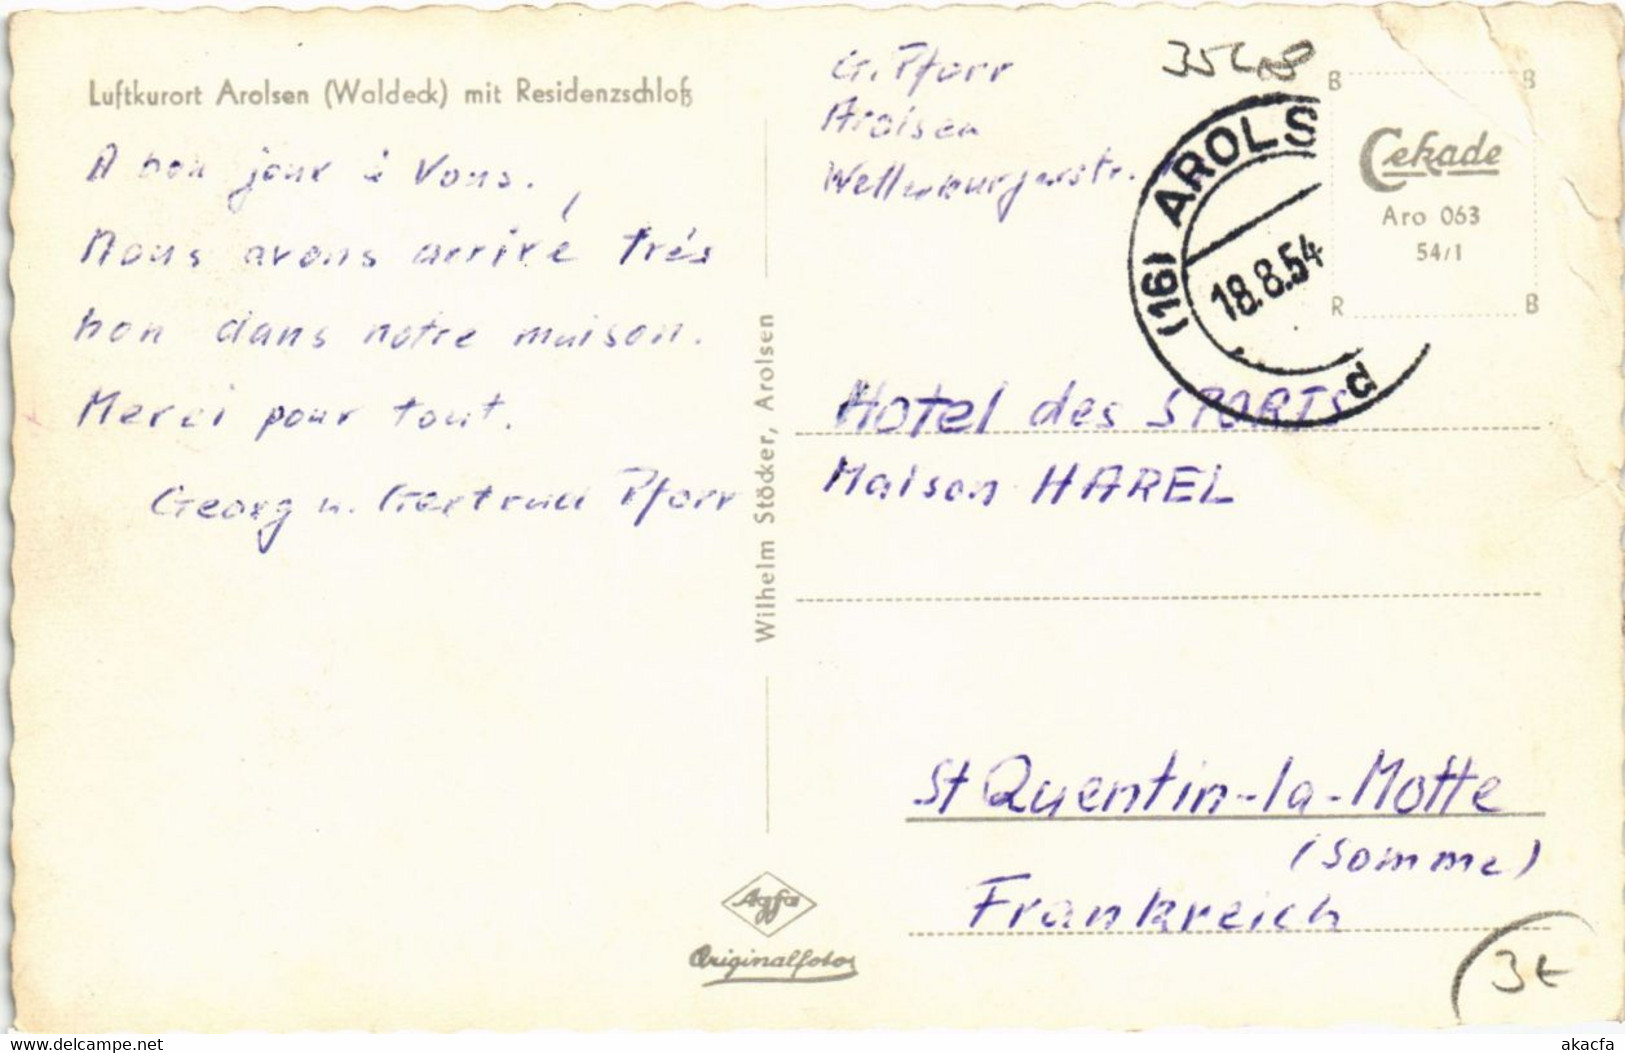 Luftkurort Arolsen (Waldeck) mit Residenzschloß
A bon jour à Vous.
Nous avons arrivé très
bon dans notre maison.
Merci pour tout.
Georg u. Gertrud Pforr
Wilhelm Stöcker, Arolsen
Agfa
Originalfoto
G. Pforr
Arolsen
(16) AROLS
18.8.54
d
B B
Cekade
Aro 063
54/1
R B
Hotel des SPORTS
Maison HAREL
St Quentin-la-Motte
(Somme)
Frankreich
3€
akacfa
www.delcampe.net